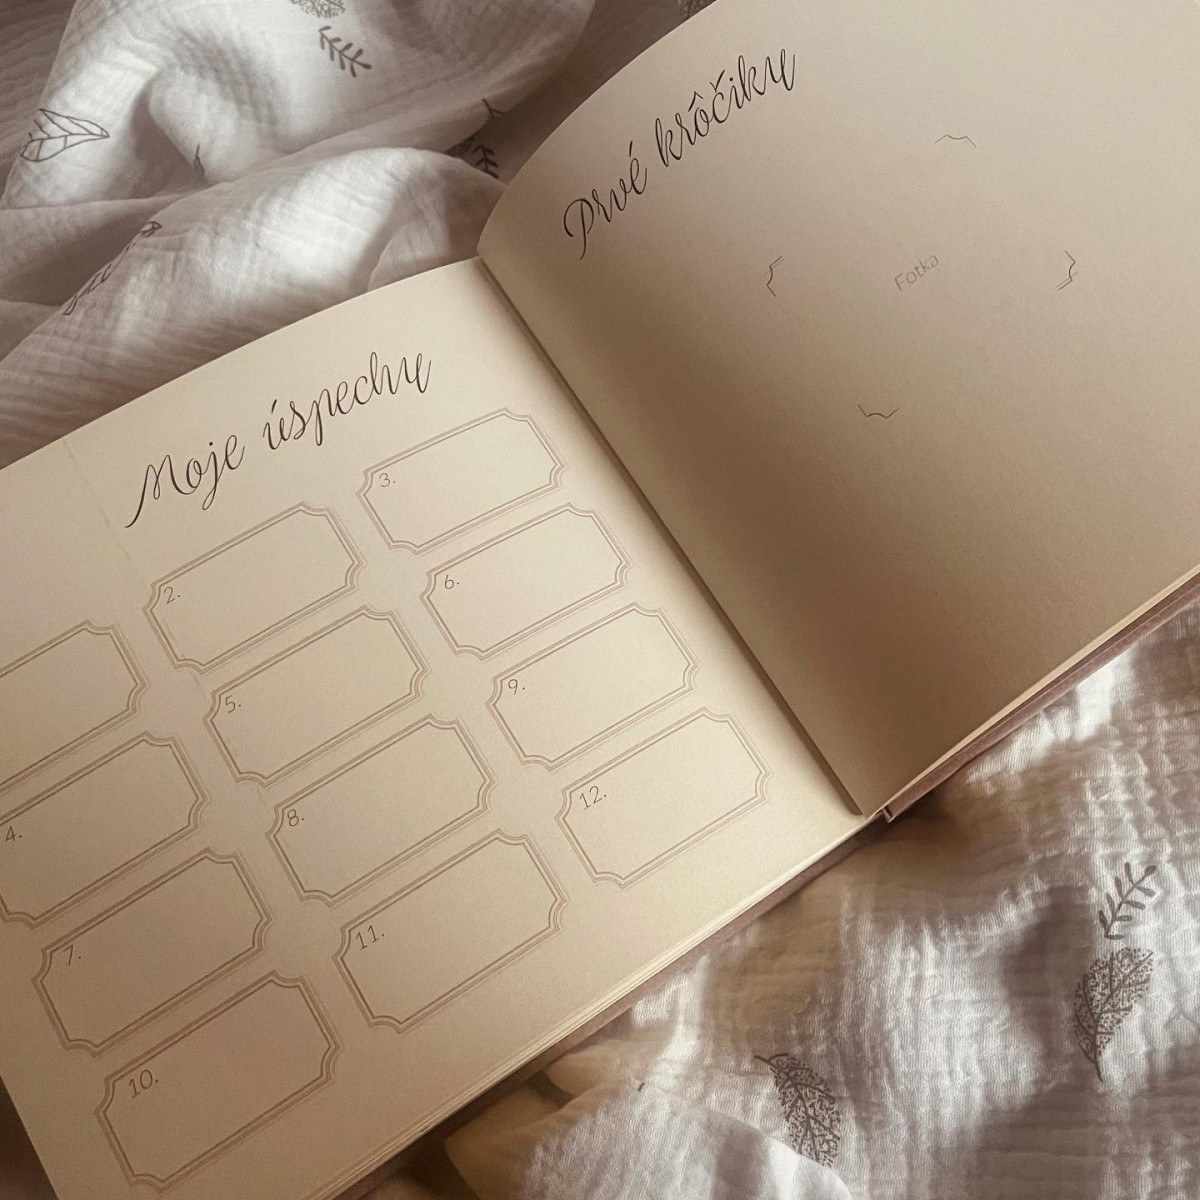 Moje úspechy
2.
3.
4.
5.
6.
7.
8.
9.
10.
11.
12.
Prvé krôčiky
Fotka